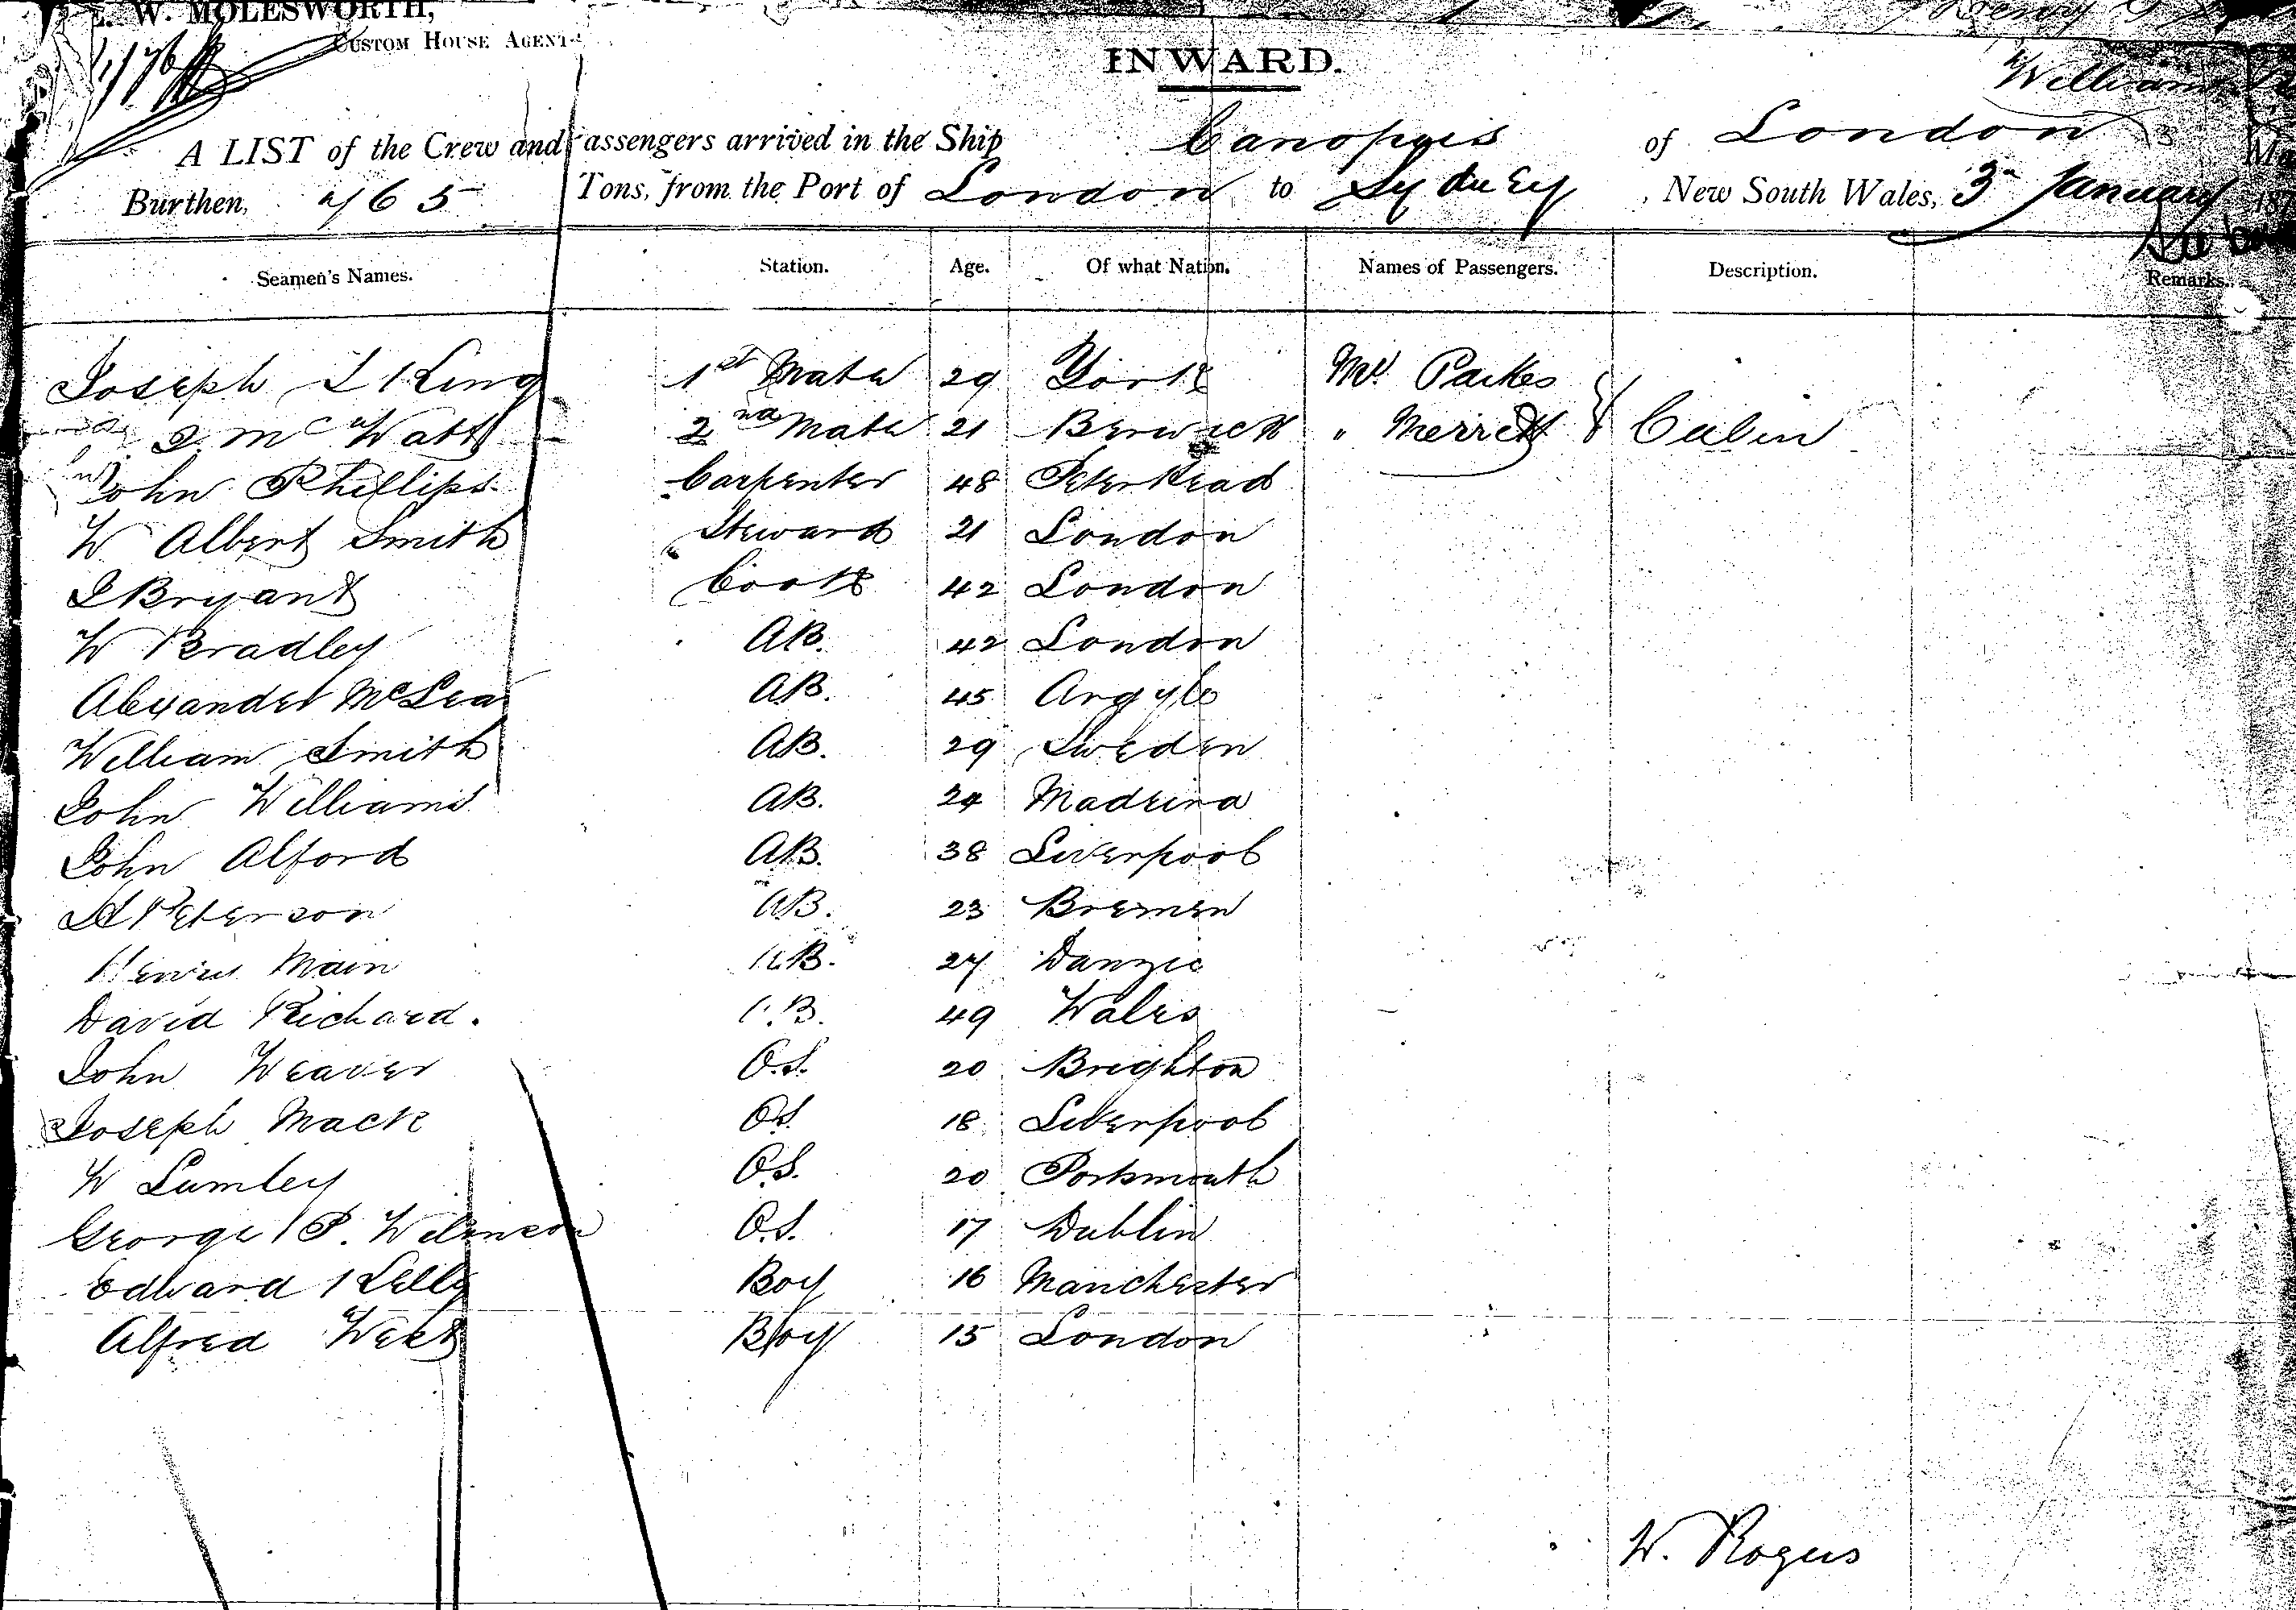 W. MOLESWORTH,
CUSTOM HOUSE AGENT
INWARD.
A LIST of the Crew and Passengers arrived in the Ship Canopus of London
Burthen, 765 Tons, from the Port of London to Sydney , New South Wales, 3rd January 187
Seamen's Names. Station. Age. Of what Nation. Names of Passengers. Description. Remarks.
Joseph L King 1st Mate 29 York Mr Parkes
J. Mc Watt 2nd Mate 21 Berwick " Merrett } Cabin
John Phillips Carpenter 48 Peterhead
W Albert Smith Steward 21 London
J Bryant Cook 42 London
W Bradley AB. 42 London
Alexander McLea AB. 45 Argyle
William Smith AB. 29 Sweden
John Williams AB. 24 Madeira
John Alford AB. 38 Liverpool
Peterson AB. 23 Bremen
Main AB. 27 Danzic
David Richard. A.B. 49 Wales
John Weaver O.S. 20 Brighton
Joseph Mack O.S. 18 Liverpool
W Lumley O.S. 20 Portsmouth
George P. Wilinson O.S. 17 Dublin
Edward Kelly Boy 16 Manchester
Alfred West Boy 15 London
W. Rogers